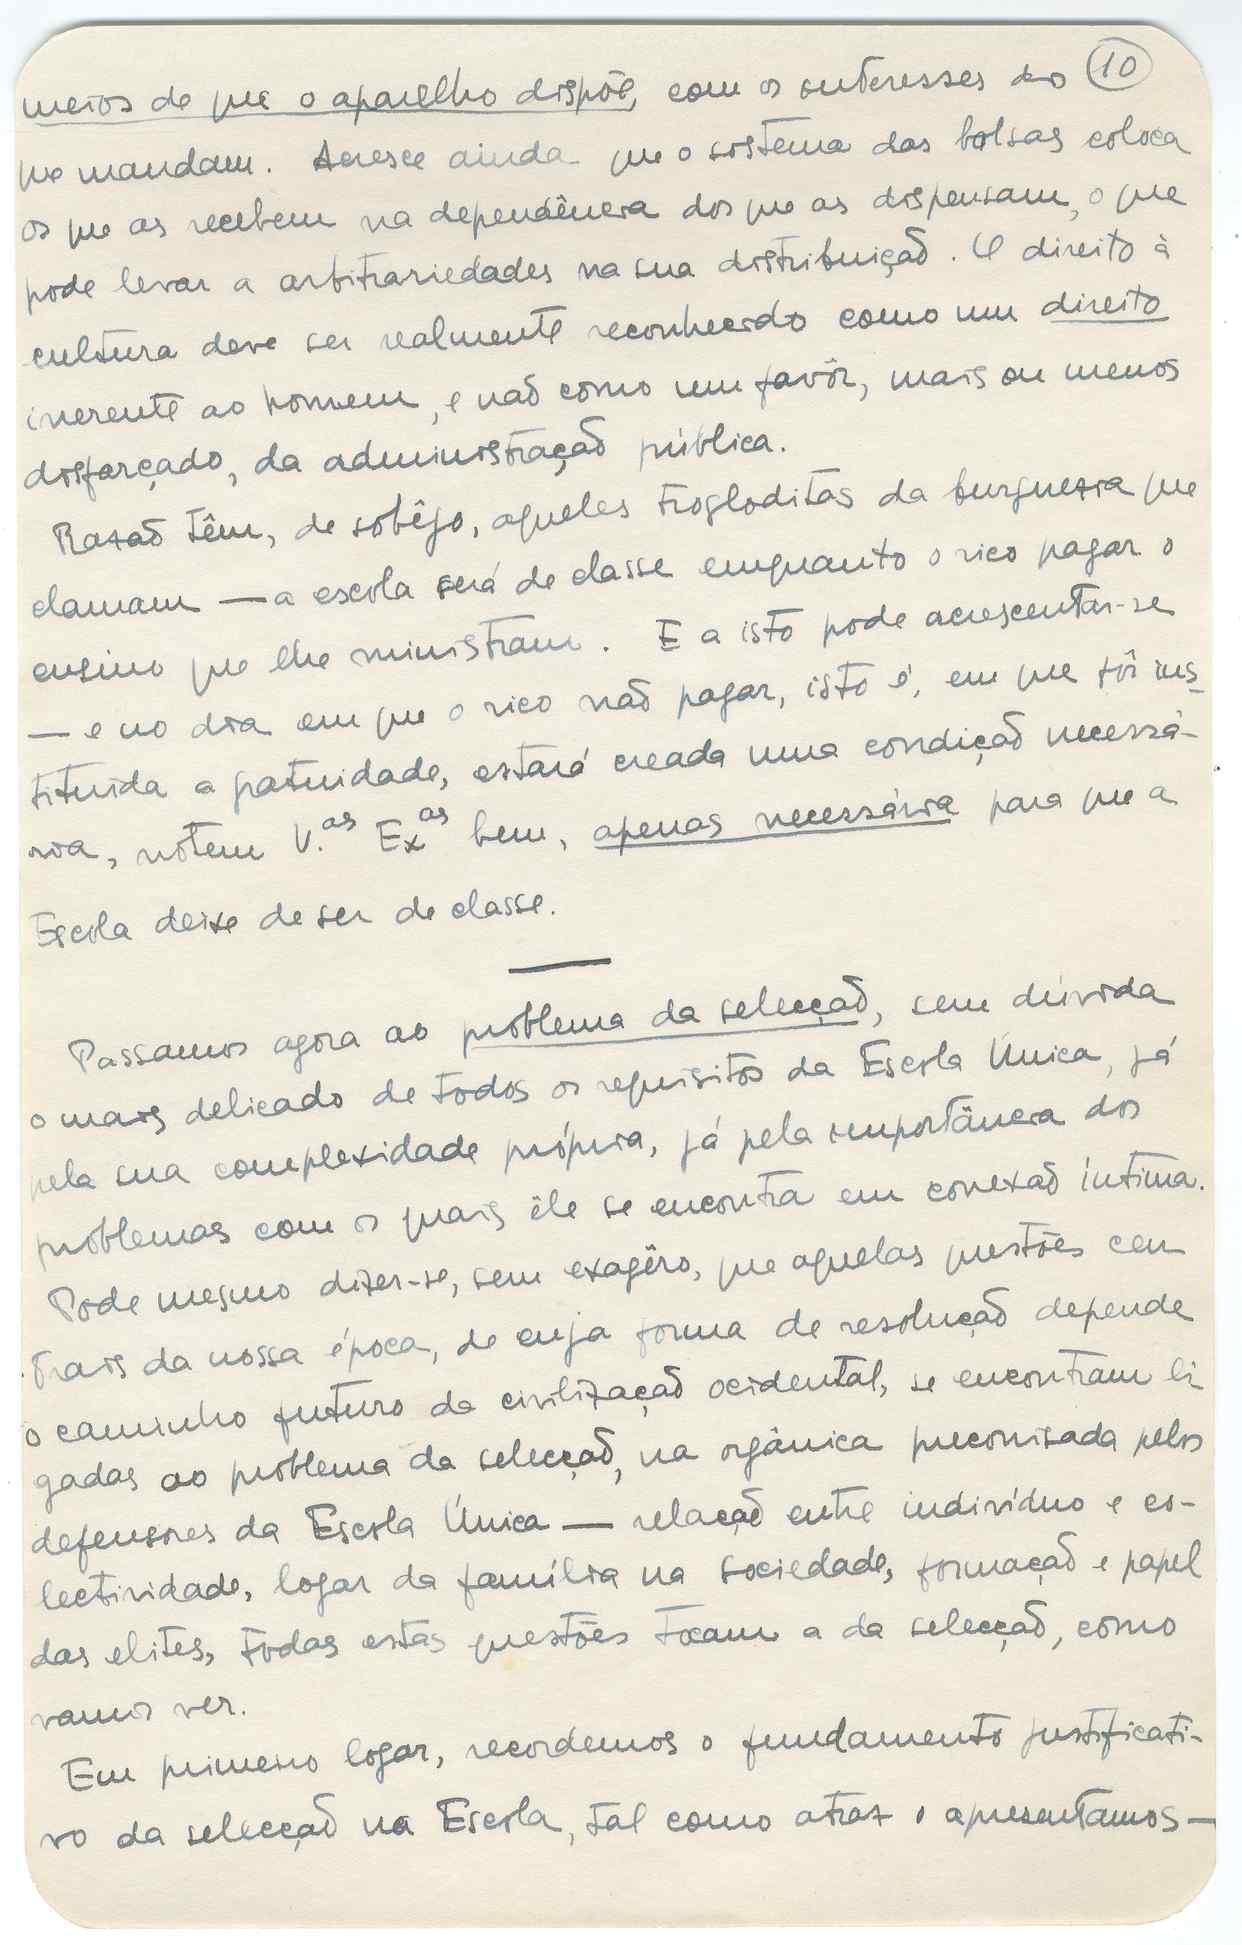 10
meios de que o aparelho dispõe, com os interesses dos
que mandam. Acresce ainda que o sistema das bolsas coloca
os que as recebem na dependência dos que as dispensam, o que
pode levar a arbitrariedades na sua distribuição. O direito à
cultura deve ser realmente reconhecido como um direito
inerente ao homem, e não como um favôr, mais ou menos
disfarçado, da administração pública.
Razão têm, de sobêjo, aqueles trogloditas da burguezia que
clamam — a escola será de classe emquanto o rico pagar o
ensino que lhe ministram. E a isto pode acrescentar-se
— e no dia em que o rico não pagar, isto é, em que fôr ins-
tituida a gratuidade, estará creada uma condição necessá-
ria, notem V.as Ex.as bem, apenas necessária para que a
Escola deixe de ser de classe.
Passamos agora ao problema da selecção, sem dúvida
o mais delicado de todos os requisitos da Escola Única, já
pela sua complexidade própria, já pela importância dos
problemas com os quais êle se encontra em conexão íntima.
Pode mesmo dizer-se, sem exagêro, que aquelas questões cen
trais da nossa época, de cuja forma de resolução depende
o caminho futuro da civilização ocidental, se encontram li
gadas ao problema da selecção, na orgânica preconisada pelos
defensores da Escola Única — relação entre indivíduo e co-
lectividade, logar da família na sociedade, formação e papel
das elites, todas estas questões tocam a da selecção, como
vamos ver.
Em primeiro logar, recordemos o fundamento justificati-
vo da selecção na Escola, tal como atraz o apresentamos —